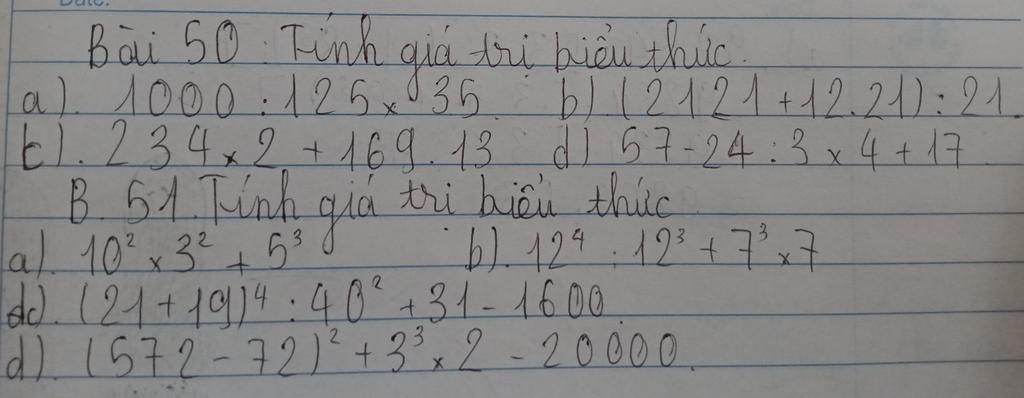 Date:
Bài 50: Tính giá trị biểu thức.
a). 1000 : 125 x 35 b) (2121 + 12.21) : 21.
c). 234 x 2 + 169 . 13 d) 57 - 24 : 3 x 4 + 17
B. 51. Tính giá trị biểu thức
a). 10² x 3² + 5³ b). 12⁴ : 12³ + 7³ x 7
c). (21 + 19)⁴ : 40² + 31 - 1600.
d). (572 - 72)² + 3³ x 2 - 20000.